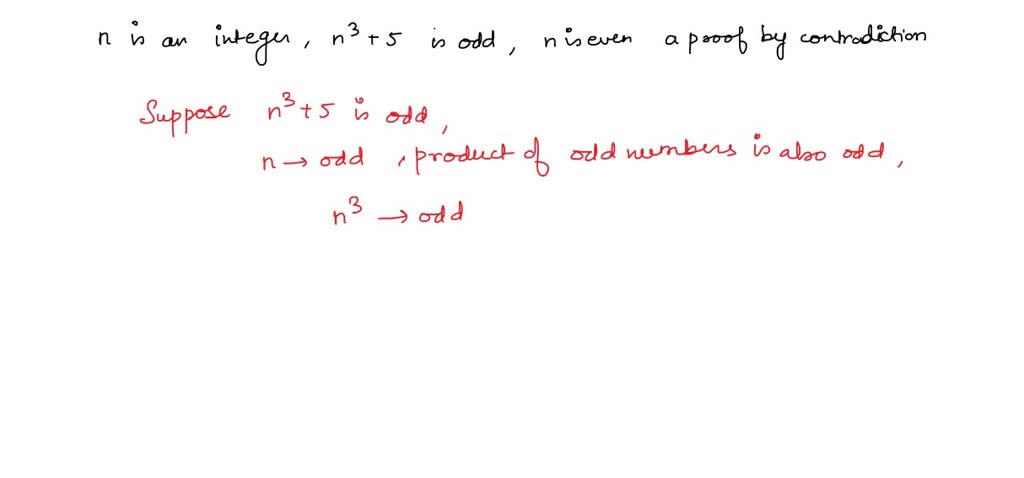 n is an integer, n³+5 is odd, n is even a proof by contradiction
Suppose n³+5 is odd,
n → odd, product of odd numbers is also odd,
n³ → odd